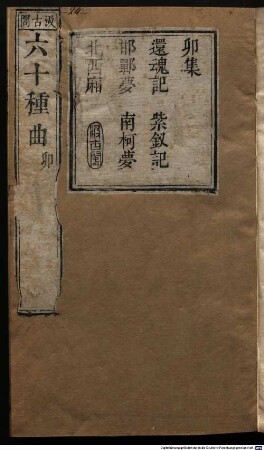 卯集
還魂記 紫釵記
邯鄲夢 南柯夢
北西廂
汲古閣
汲古閣
六十種曲 卯